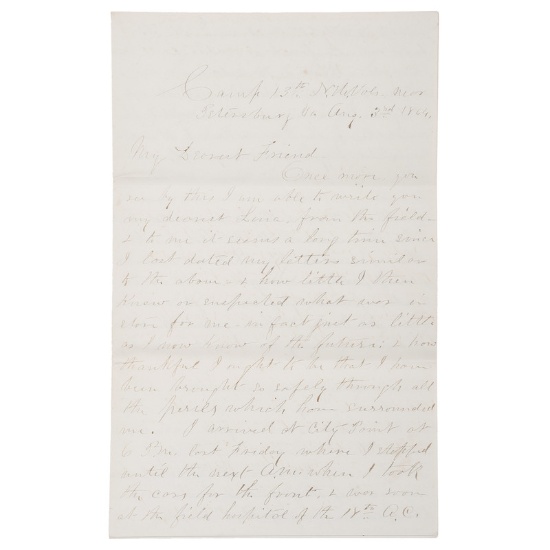 Camp 13th N.H. Vols. near
Petersburg Va. Aug. 3d 1864.
My Dearest Friend
Once more you
see by this I am able to write you
my dearest from the field
& to me it seems a long time since
I last dated my letters similar
to the above & how little I then
knew or suspected what was in
store for me - in fact just as little
as I now know of the future; & how
thankful I ought to be that I have
been brought so safely through all
the perils which have surrounded
me. I arrived at City Point at
6 P.M. last Friday where I stopped
until the next A.M. when I took
the cars for the front, & was soon
at the field hospital of the 18th A.C.